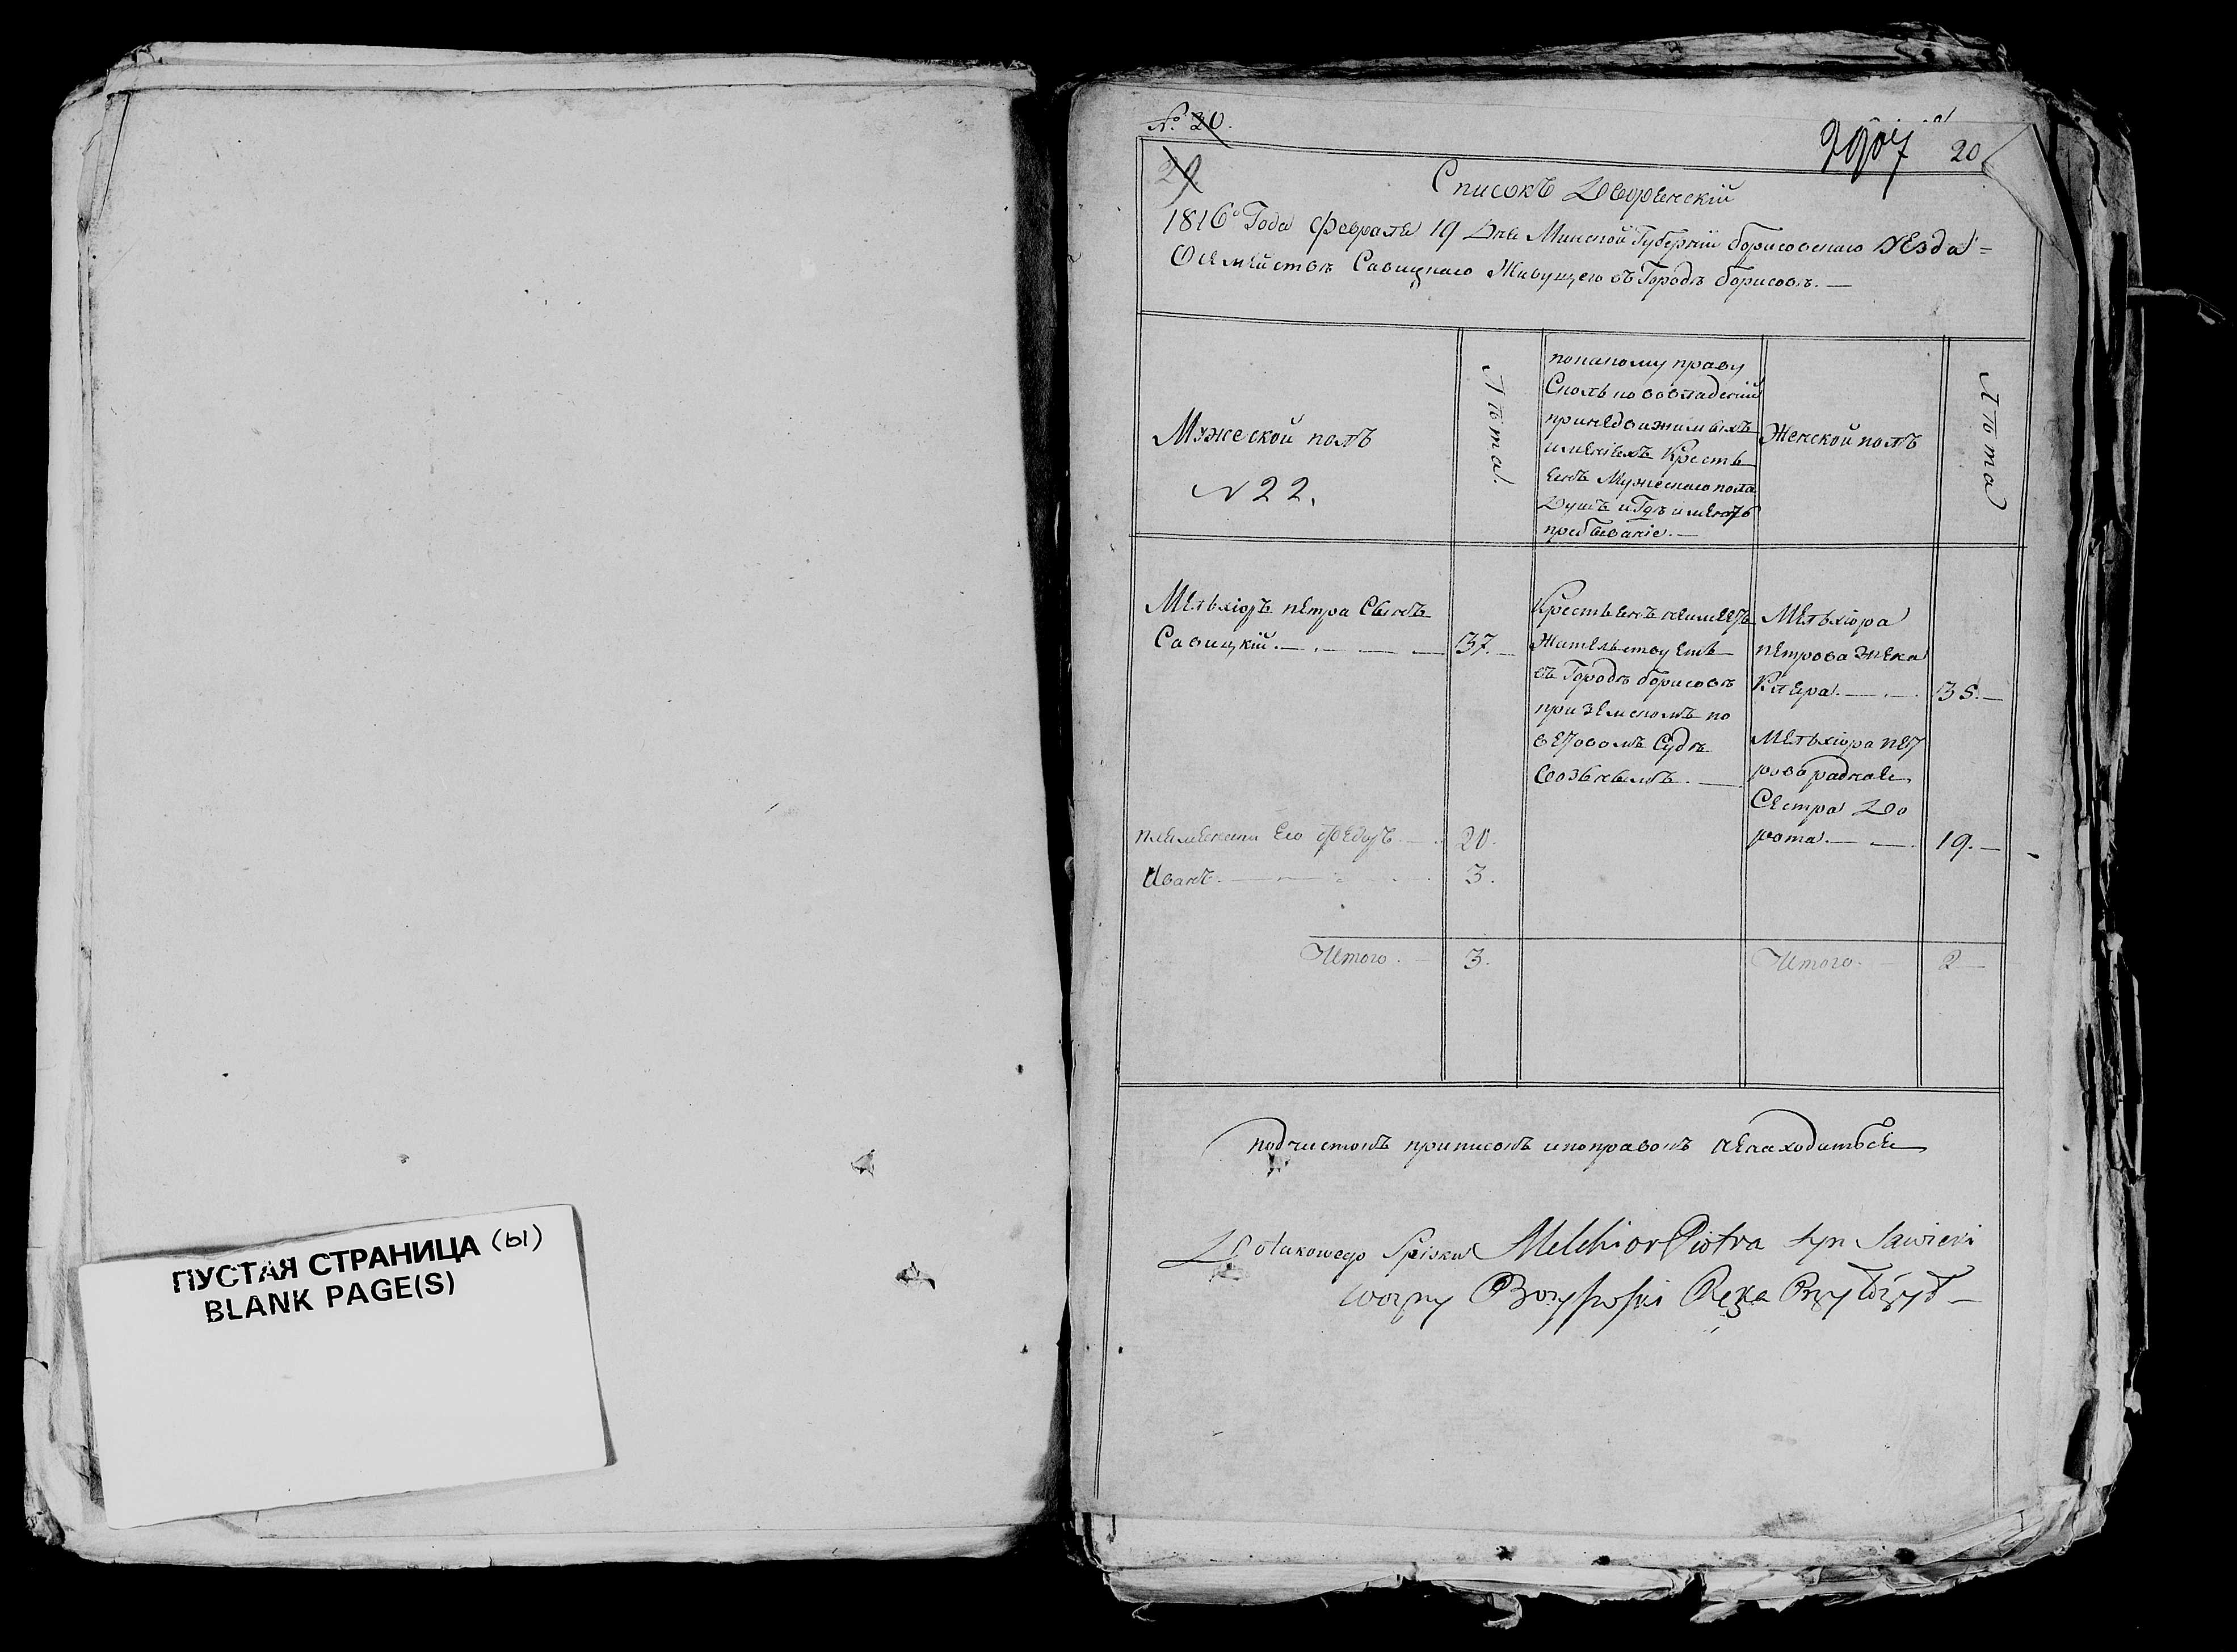 ПУСТАЯ СТРАНИЦА (ы)
BLANK PAGE(S)
№ 20.
20
Списокъ Дворенскій
1816го Года Февраля 19 Дня Минской Губерніи Борисовскаго уезда
О семействѣ Савицкаго Живущего въ Городѣ Борисовѣ. —
Мужеской полъ
№ 22.
Лѣта.
покакому праву
Сколь по вовладеніи
принедвижимыхъ
именіехъ Кресть
енъ Мужескаго пола
Душъ и Гдѣ имеютъ
пребываніе. —
Женской полъ
Лѣта
Мельхіоръ Петра Сынъ
Савицкій. — 37. —
Крестьенъ неимеетъ
Жительствуетъ
въ Городѣ Борисовѣ
при Земскомъ по
ветовомъ Судѣ
Возънымъ. —
Мельхіора
Петрова жена
Клера. — 35. —
Мельхіора пет
рова родная
Сестра До
рота. — 19. —
племеники Его Федоръ — 20.
Иванъ. — 3.
Итого. — 3.
Итого. — 2 —
подчистокъ приписокъ ипоправокъ ненаходитьсе
Do takowego Spisku Melchior Piotra syn Sawicki
Wozny Boryssowski Rękę